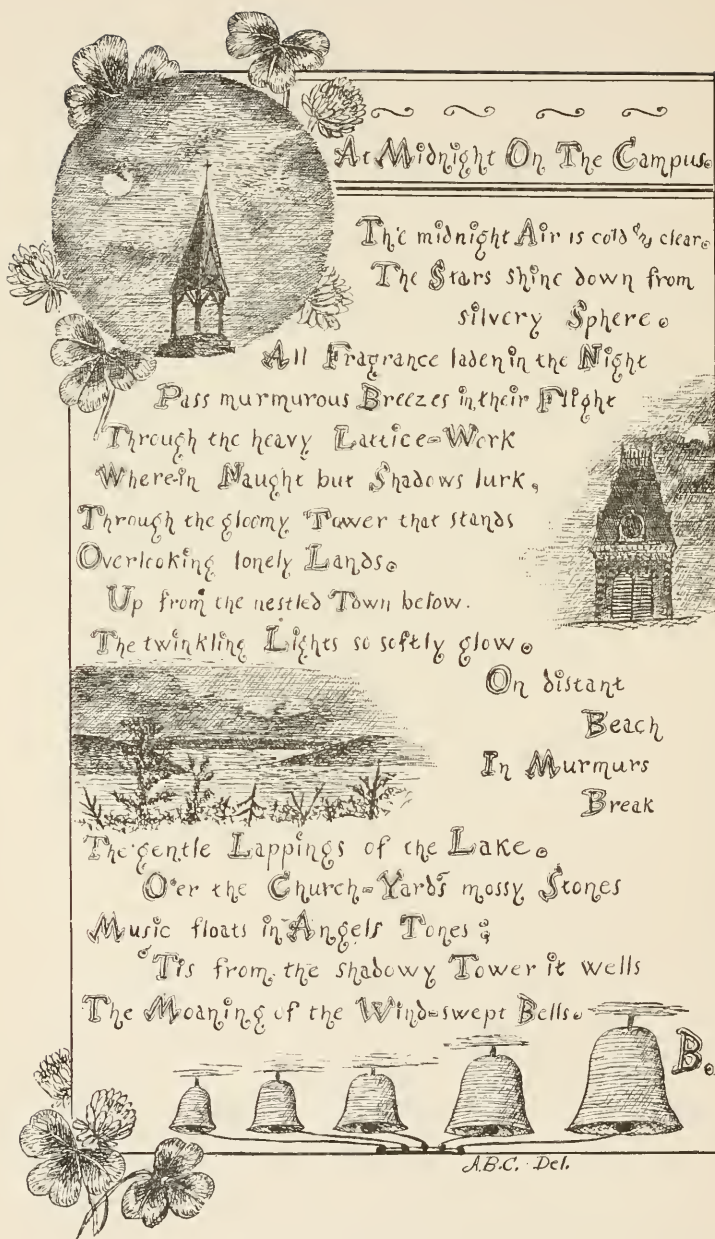 At Midnight On The Campus.
The midnight Air is cold & clear.
The Stars shine down from
silvery Sphere.
All Fragrance laden in the Night
Pass murmurous Breezes in their Flight
Through the heavy Lattice=Work
Where-in Naught but Shadows lurk,
Through the gloomy Tower that stands
Overlooking lonely Lands.
Up from the nestled Town below.
The twinkling Lights so softly glow.
On distant
Beach
In Murmurs
Break
The gentle Lappings of the Lake.
O'er the Church=Yard's mossy Stones
Music floats in Angels Tones;
'Tis from the shadowy Tower it wells
The Moaning of the Wind=swept Bells.
B.
A.B.C. Del.